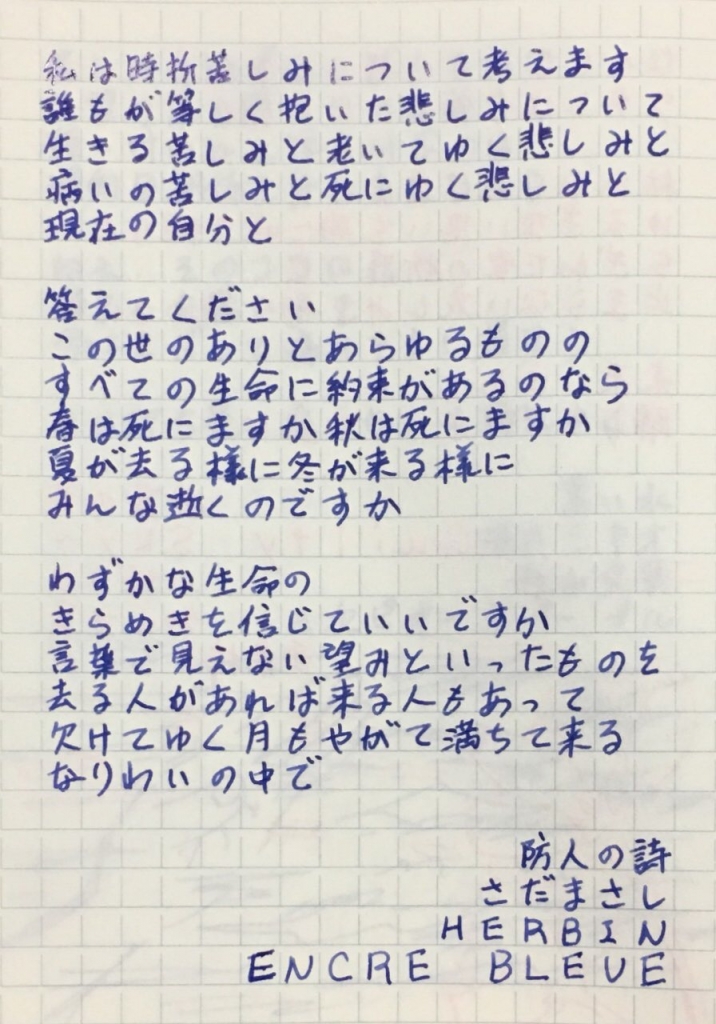 私は時折苦しみについて考えます
誰もが等しく抱いた悲しみについて
生きる苦しみと老いてゆく悲しみと
病いの苦しみと死にゆく悲しみと
現在の自分と
答えてください
この世のありとあらゆるものの
すべての生命に約束があるのなら
春は死にますか秋は死にますか
夏が去る様に冬が来る様に
みんな逝くのですか
わずかな生命の
きらめきを信じていいですか
言葉で見えない望みといったものを
去る人があれば来る人もあって
欠けてゆく月もやがて満ちて来る
なりわいの中で
防人の詩
さだまさし
HERBIN
ENCRE BLEUE